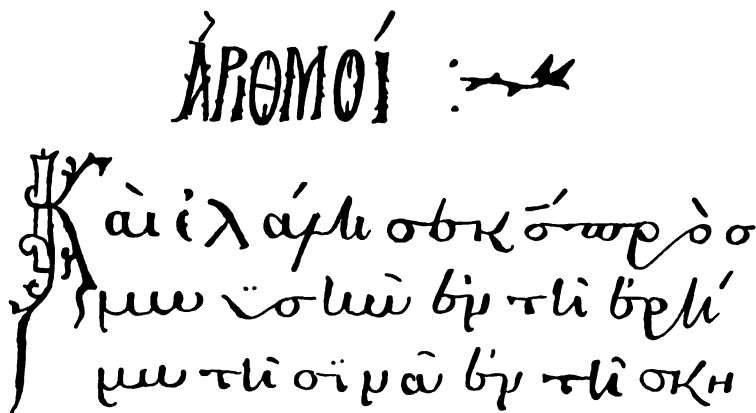 ἈΡΙΘΜΟΊ :
Καὶ ἐλάλησε κ̅ς̅ πρὸς
μωϋσὴν ἐν τῆ ἐρή
μω τῆ σϊνᾶ ἐν τῆ σκη